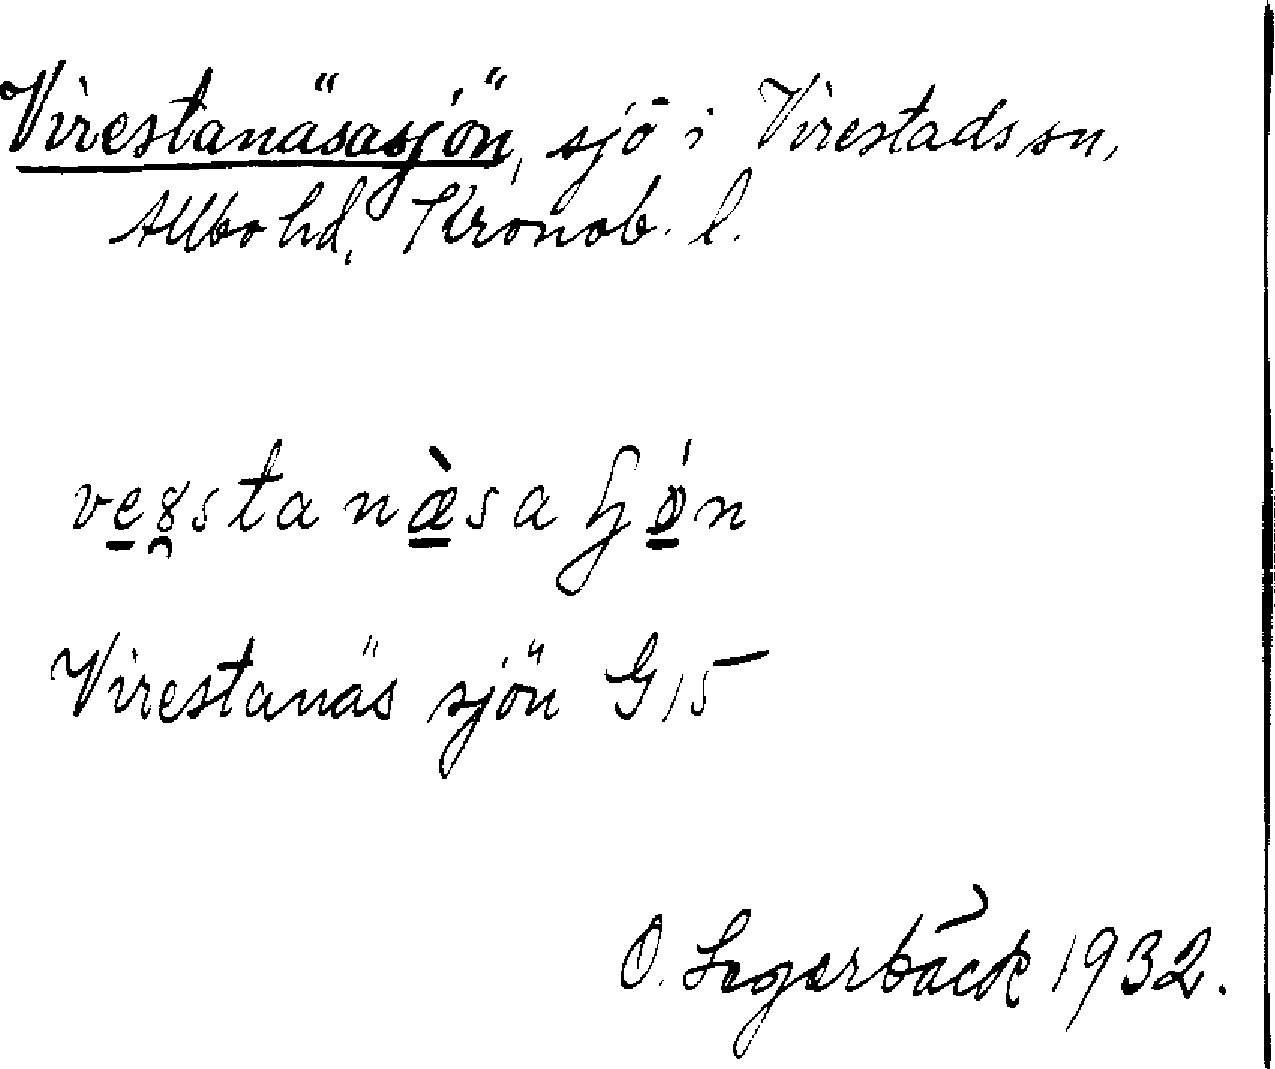 Virestanäsasjön, sjö i Virestads sn,
Allbo hd, Kronob. l.
vęʒ̑stanæ̀saɧǿn
Virestanäs sjön G 15
O. Segerbäck 1932.